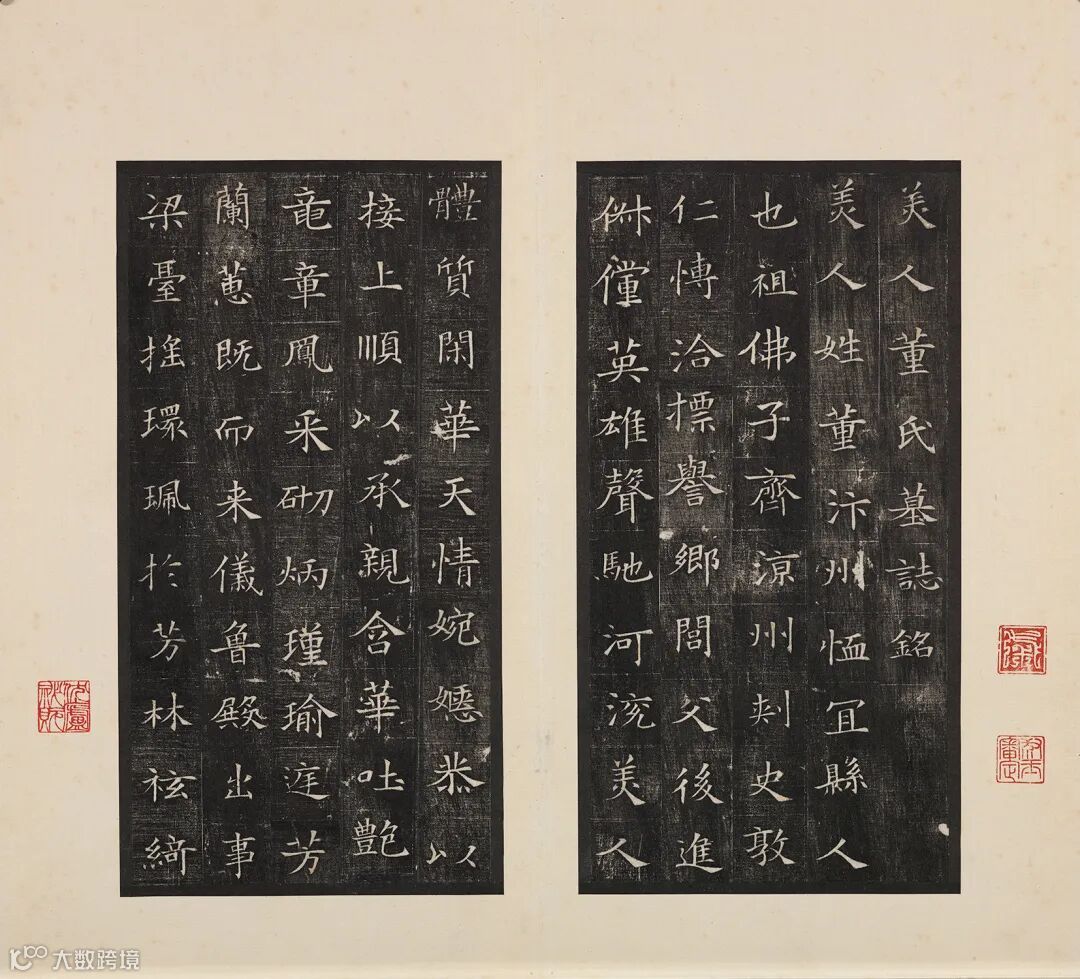 美人董氏墓誌銘
美人姓董汴州恤冝縣人
也祖佛子齊涼州刾史敦
仁博洽標譽鄉閭父後進
俶儻英雄聲馳河渷美人
體質閑華天情婉嫕恭以
接上順以承親含華吐艶
竜章鳳采砌炳瑾瑜庭芳
蘭蕙既而来儀魯殿出事
梁臺搖環珮於芳林袨綺
大数跨境